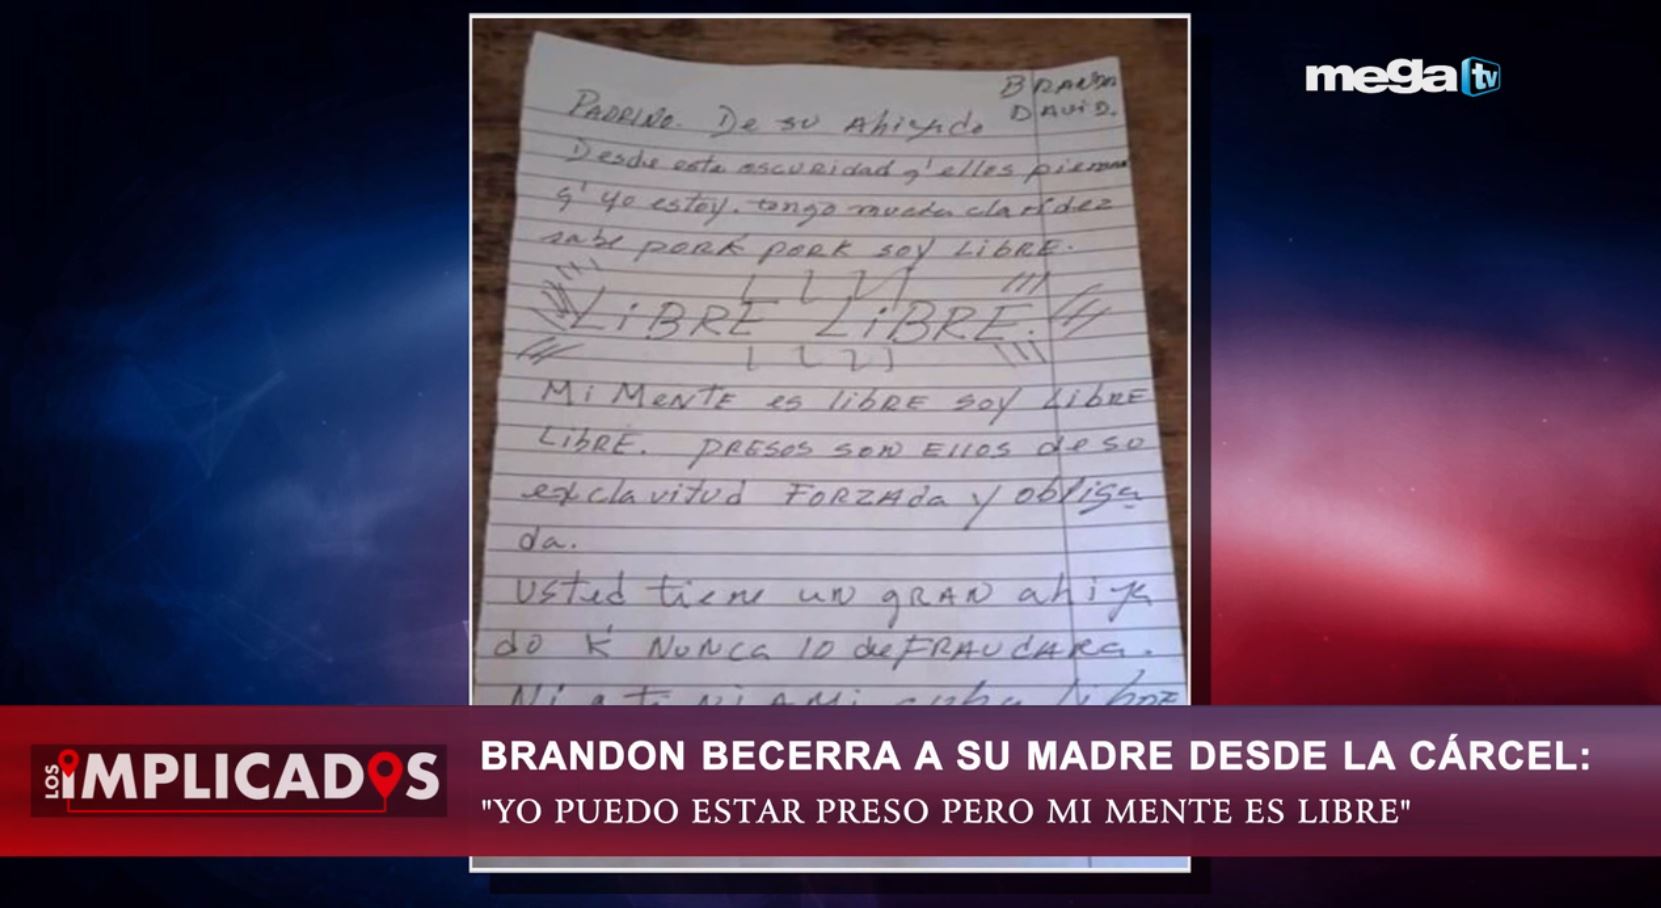 mega tv
BRANDON
DAVID.
PADRINO. De su Ahiyado
Desde esta oscuridad q' ellos piensan
q' yo estoy. tengo mucha claridez
sabe PORK PORK soy LiBRE.
LiBRE LiBRE.
Mi MeNTE es libRE soy LibRE
LibRE. PRESOS SON Ellos de su
exclavitud FORZAda y obliga
da.
usted tiene un gRAN ahiya
do K' NUNCa lo deFRAUdARa.
Ni a ti Ni A Mi cuba libRE
LOS IMPLICADOS
BRANDON BECERRA A SU MADRE DESDE LA CÁRCEL:
"YO PUEDO ESTAR PRESO PERO MI MENTE ES LIBRE"